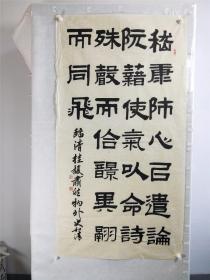 嵇康師心㠯遣論
阮藉使气以命詩
殊聲而合響異翮
而同飛